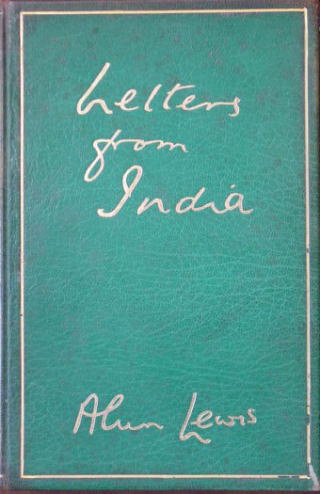 Letters
from
India
Alun Lewis